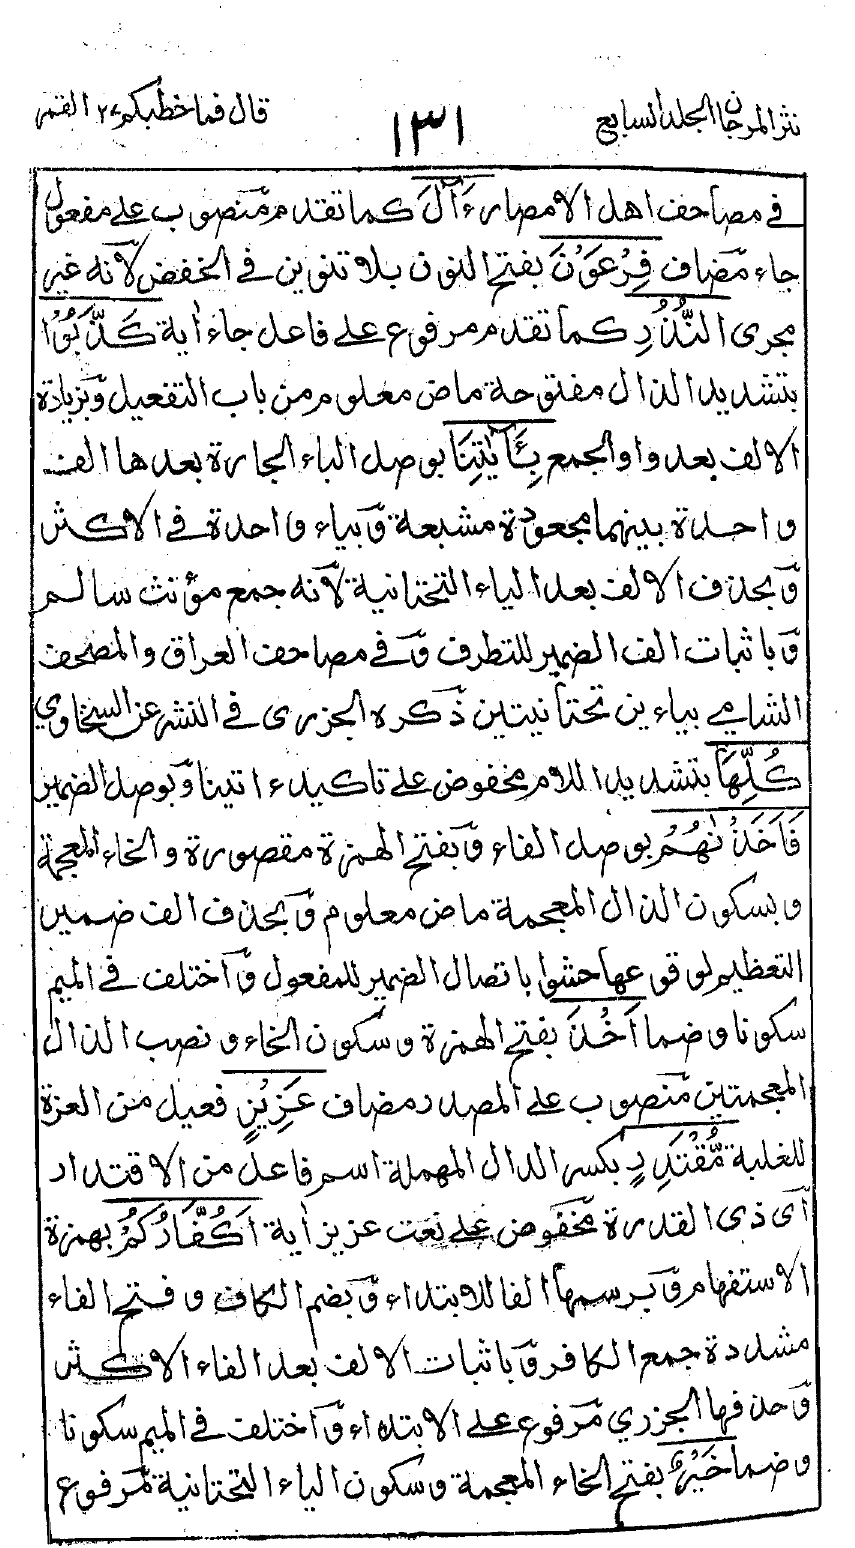 نثر المرجان المجلد السابع
١٣١
قال فما خطبكم ٢٧ القمر
في مصاحف اهل الامصار ءَالَ كما تقدم منصوب على مفعول
جاء مضاف فِرْعَوْنَ بفتح النون بلا تنوين في الخفض لأنه غير
مجرى النُّذُرُ كما تقدم مرفوع على فاعل جاء اٰية كَذَّبُوْا
بتشديد الذال مفتوحة ماض معلوم من باب التفعيل وبزيادة
الالف بعد واو الجمع بِـَٔايٰتِنَا بوصل الباء الجارة بعدها الف
واحدة بينهما مجعودة مشبعة وبياء واحدة في الاكثر
وبحذف الالف بعد الياء التحتانية لأنه جمع مؤنث سالم
وباثبات الف الضمير للتطرف وفي مصاحف العراق والمصحف
الشامي بياءين تحتانيتين ذكره الجزرى في النشر عن السخاوي
كُلِّهَا بتشديد اللام مخفوض على تاكيد ءاتينا وبوصل الضمير
فَاَخَذْنٰهُمْ بوصل الفاء وبفتح الهمزة مقصورة والخاء المعجمة
وبسكون الذال المعجمة ماض معلوم وبحذف الف ضمير
التعظيم لوقوعها حشوا باتصال الضمير للمفعول واختلف في الميم
سكونا وضما اَخْذَ بفتح الهمزة وسكون الخاء ونصب الذال
المعجمتين منصوب على المصدر مضاف عَزِيْزٍ فعيل من العزة
للغلبة مُّقْتَدِرٍ بكسر الدال المهملة اسم فاعل من الاقتدار
اى ذى القدرة مخفوض على نعت عزيز اٰية اَكُفَّارُكُمْ بهمزة
الاستفهام وبرسمها الفا للابتداء وبضم الكاف وفتح الفاء
مشددة جمع الكافر وباثبات الالف بعد الفاء الاكثر
وحذفها الجزري مرفوع على الابتداء واختلف في الميم سكونا
وضما خَيْرٌ بفتح الخاء المعجمة وسكون الياء التحتانية مرفوع